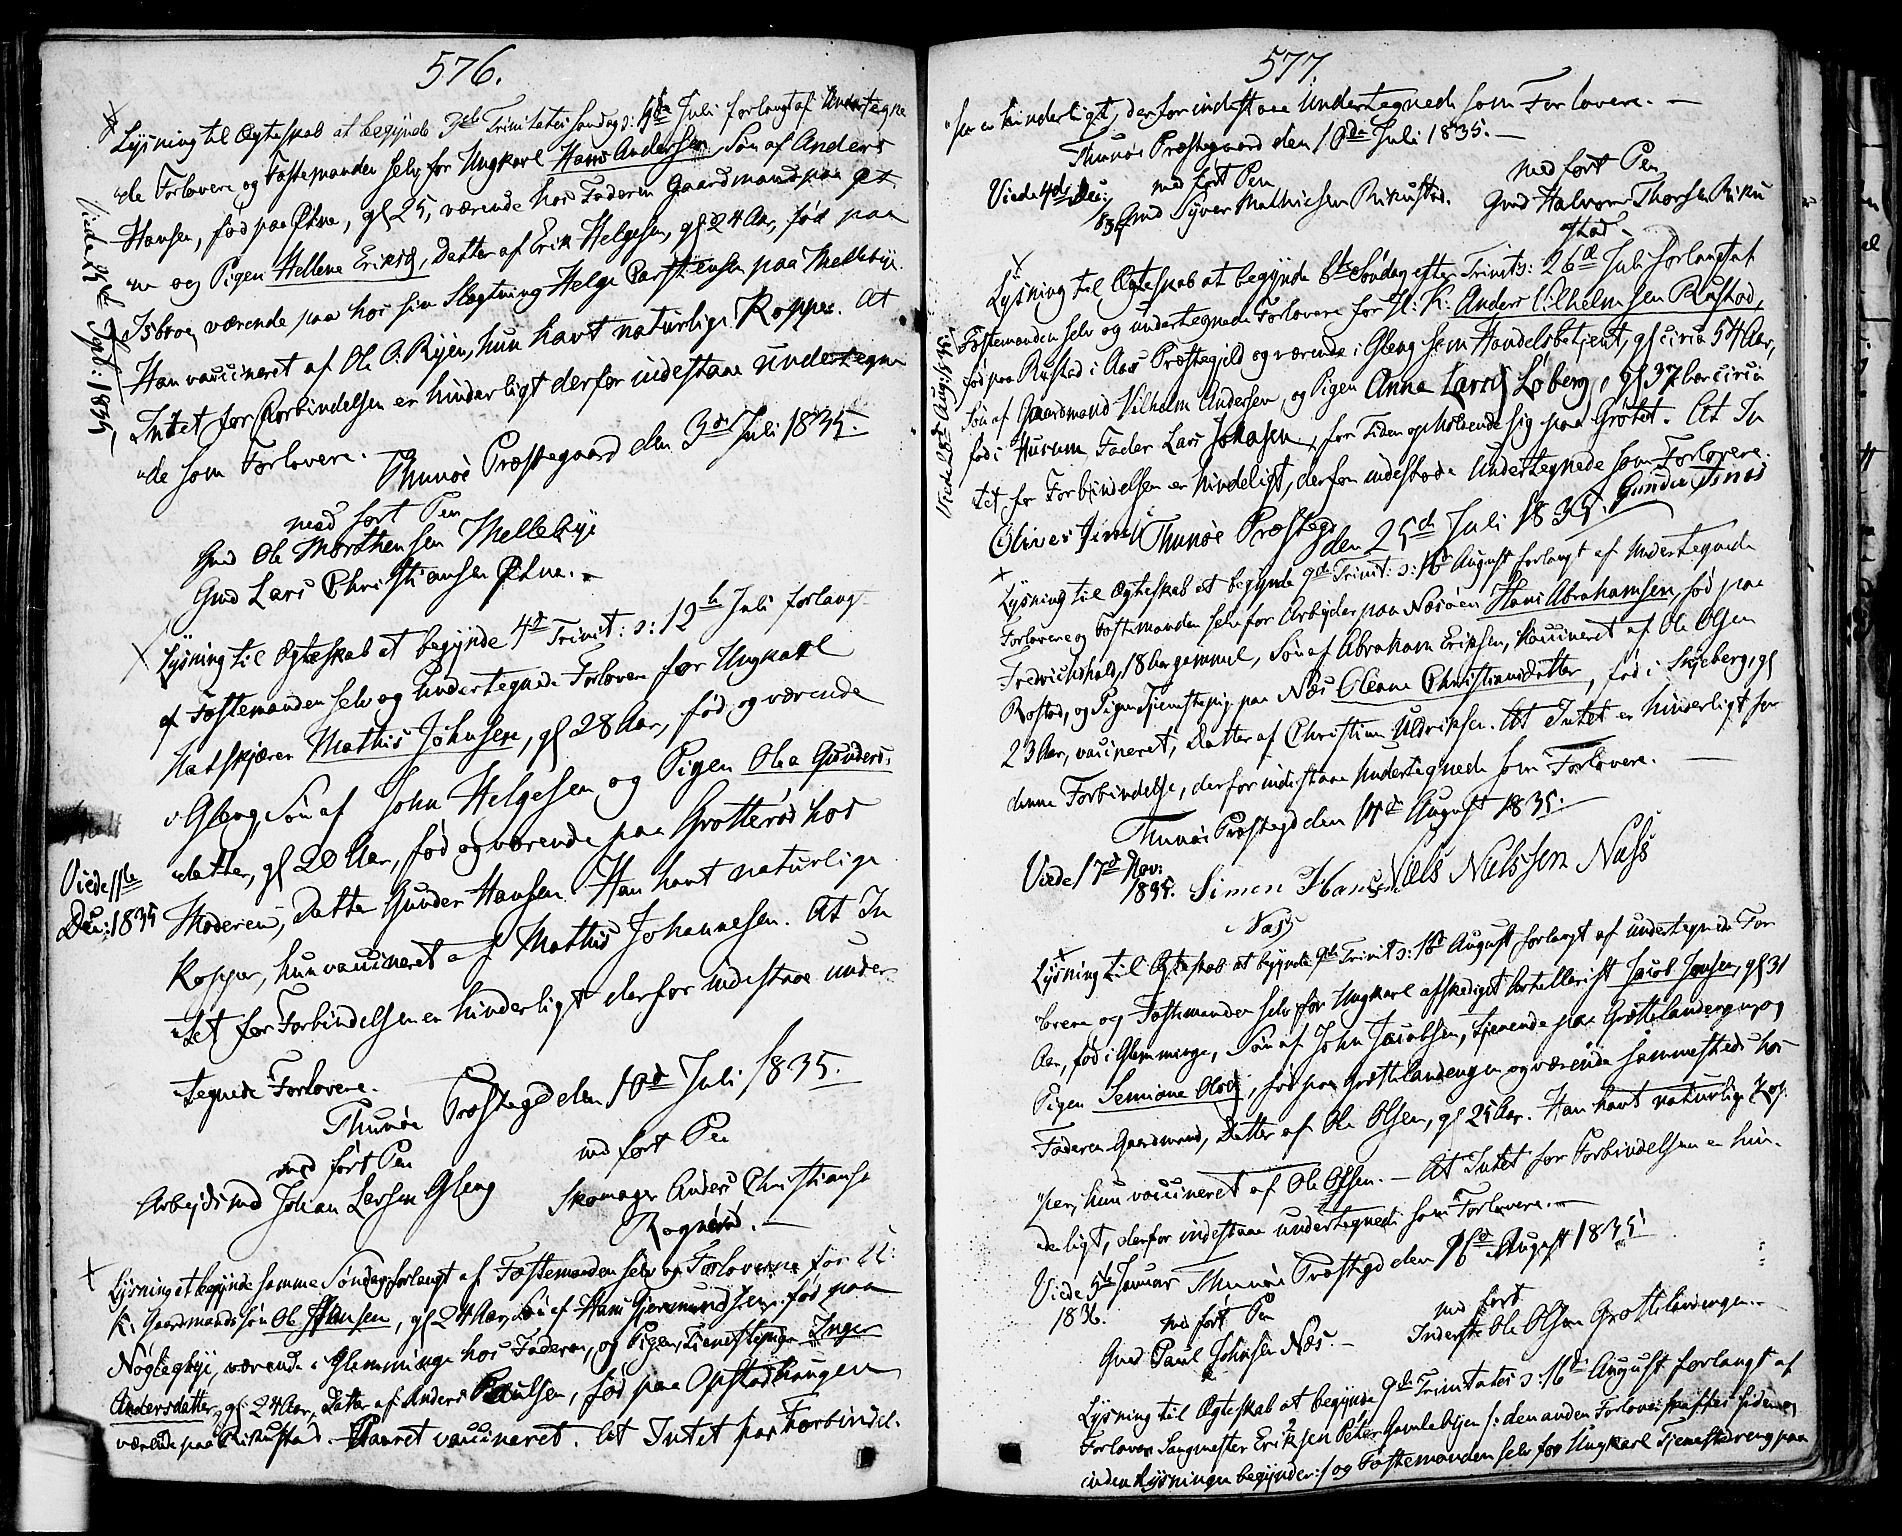 576.
Lysning til Ægteskab at begynde 3de Trinitates Søndag s: 5te Juli forlangt af Undertegne
de Forlovere og Fæstemanden selv for Ungkarl Hans Andersen, Søn af Anders
Hansen, fød paa Elne, gl 25, værende hos Faderen Gaardmand paa El
ne og Pigen Hellene Eriksd, Datter af Erik Helgesen, gl 24 Aar, fød paa
Isbroe, værende paa hos sin Slægtning Helge Carstensen paa Thellebye.
Han vaccineret af Ole O. Ryen, hun havt naturlige Kopper. At
Intet for Forbindelsen er hinderligt derfor indestaae undertegne
de som Forlovere.
Thunøe Præstegaard den 3de Juli 1835.
Viede 25de Sept: 1835
med ført Pen
Gmd Ole Morthensen Thellebye
Gmd Lars Christiansen Elne.
Lysning til Ægteskab at begynde 4de Trinit: s: 12te Juli forlangt
af Fæstemanden selv og Undertegnede Forlovere for Ungkarl
Matskjærer Mathis Johnsen, gl 28 Aar, fød og værende
i Gleng, Søn af John Helgesen og Pigen Olea Gunders-
datter, gl 20 Aar, fød og værende paa Grotterød hos
Moderen, Datter Gunder Hansen. Han havt naturlige
Kopper, hun vaccineret af Mathis Johannesen. At In
tet for Forbindelsen er hinderligt derfor indestaae under-
tegnede Forlovere.
Viede 11te
Dec: 1835
Thunøe Præstegd den 10de Juli 1835.
med ført Pen med ført Pen
Arbejdsmd Johan Larsen Gleng Skomager Anders Christiansen
Rognerød.
Lysning at begynde samme Søndag forlangt af Fæstemanden selv og Forloverne for U:
K: Gaardmandssøn Ole Hansen, gl 24 Aar, Søn af Hans Gjermundsen, fød paa
Nøglegbye, værende i Glemminge hos Faderen, og Pigen, Tjenestepige Inger
Andersdatter, gl: 24 Aar, Datter af Anders Paulsen, fød paa Opstadhaugen
værende paa Rikustad. Parret vaccineret. At Intet for Forbindel-
577.
sen er hinderligt, derfor indestaae Undertegnede som Forlovere.
Thunøe Præstegaard den 10de Juli 1835.
Viede 4de Dec:
1835
med ført Pen med ført Pen
Gmd Syver Mathiesen Rikustad. Gmd Halvor Thorsen Riku
stad
Lysning til Ægteskab at begynde 6te Søndag efter Trinit s: 26de Juli forlangt af
Fæstemanden selv og undertegnede Forlovere for U: K: Anders Vilhelmsen Rustad,
fød paa Rustad i Aas Præstegjeld og værende i Gleng som Handelsbetjent, gl circa 54 Aar,
Søn af Gaardmand Vilhelm Andersen, og Pigen Anna Larsd Løberg, gl 37 Aar circa
fød i Hurum Fader Lars Johnsen, for Tiden opholdende sig paa Grotet. At In
tet for Forbindelsen er hinderligt, derfor indestaae Undertegnede som Forlovere.
Viede 28de Aug: 1835
Thunøe Præstegd den 25de Juli 1835.
Lysning til Ægteskab at begynde 9de Trinit: s: 16de August forlangt af Undertegnede
Forlovere og Fæstemanden selv for Arbejder paa Næsøen Hans Abrahamsen, fød paa
Fredrichshald, 18 Aar gammel, Søn af Abraham Eriksen, vaccineret af Ole Olsen
Rostad, og Pigen Tjenestepig. paa Næs Oleana Christiansdatter, fød i Skjeberg, gl
23 Aar, vaccineret, Datter af Christian Uldriksen. At Intet er hinderligt for
denne Forbindelse, derfor indestaae Undertegnede som Forlovere.
Thunøe Præstegd den 14de August 1835.
Viede 17de Nov:
1835.
Simen Hansen Niels Nielssen Nass
Nass
Lysning til Ægteskab at begynde 9de Trinit s: 16de August forlangt af undertegnede For
lovere og Fæstemanden selv for Ungkarl afskediget Artellerist Jacob Jonsen, gl 31
Aar, fød i Glemminge, Søn af John Jacobsen, tjenende paa Grøttelandengen, og
Pigen Semiane Olsd, fød paa Grøttelandengen og værende sammesteds hos
Faderen Gaardmand, Datter af Ole Olsen, gl 25 Aar. Han havt naturlige Kop-
per, hun vaccineret af Ole Olsen. — At Intet for Forbindelsen er hin-
derligt, derfor indestaae undertegnede som Forlovere.
Viede 5te Januar
1836.
Thunøe Præstegd den 16de August 1835
med ført Pen med ført
Gmd Paul Johnsen Næs. Inderste Ole Olsen Grøttelandengen.
Lysning til Ægteskab at begynde 9de Trinitates s: 16de August forlangt af
Forlover Sangmester Eriksen Peter Gamlebyen /: den anden Forlover skaffes siden og
inden Lysningen begynder :/ og Fæstemanden selv for Ungkarl Tjenestedreng paa